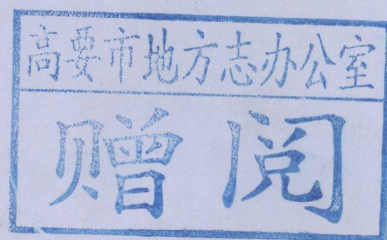 高要市地方志办公室
赠阅